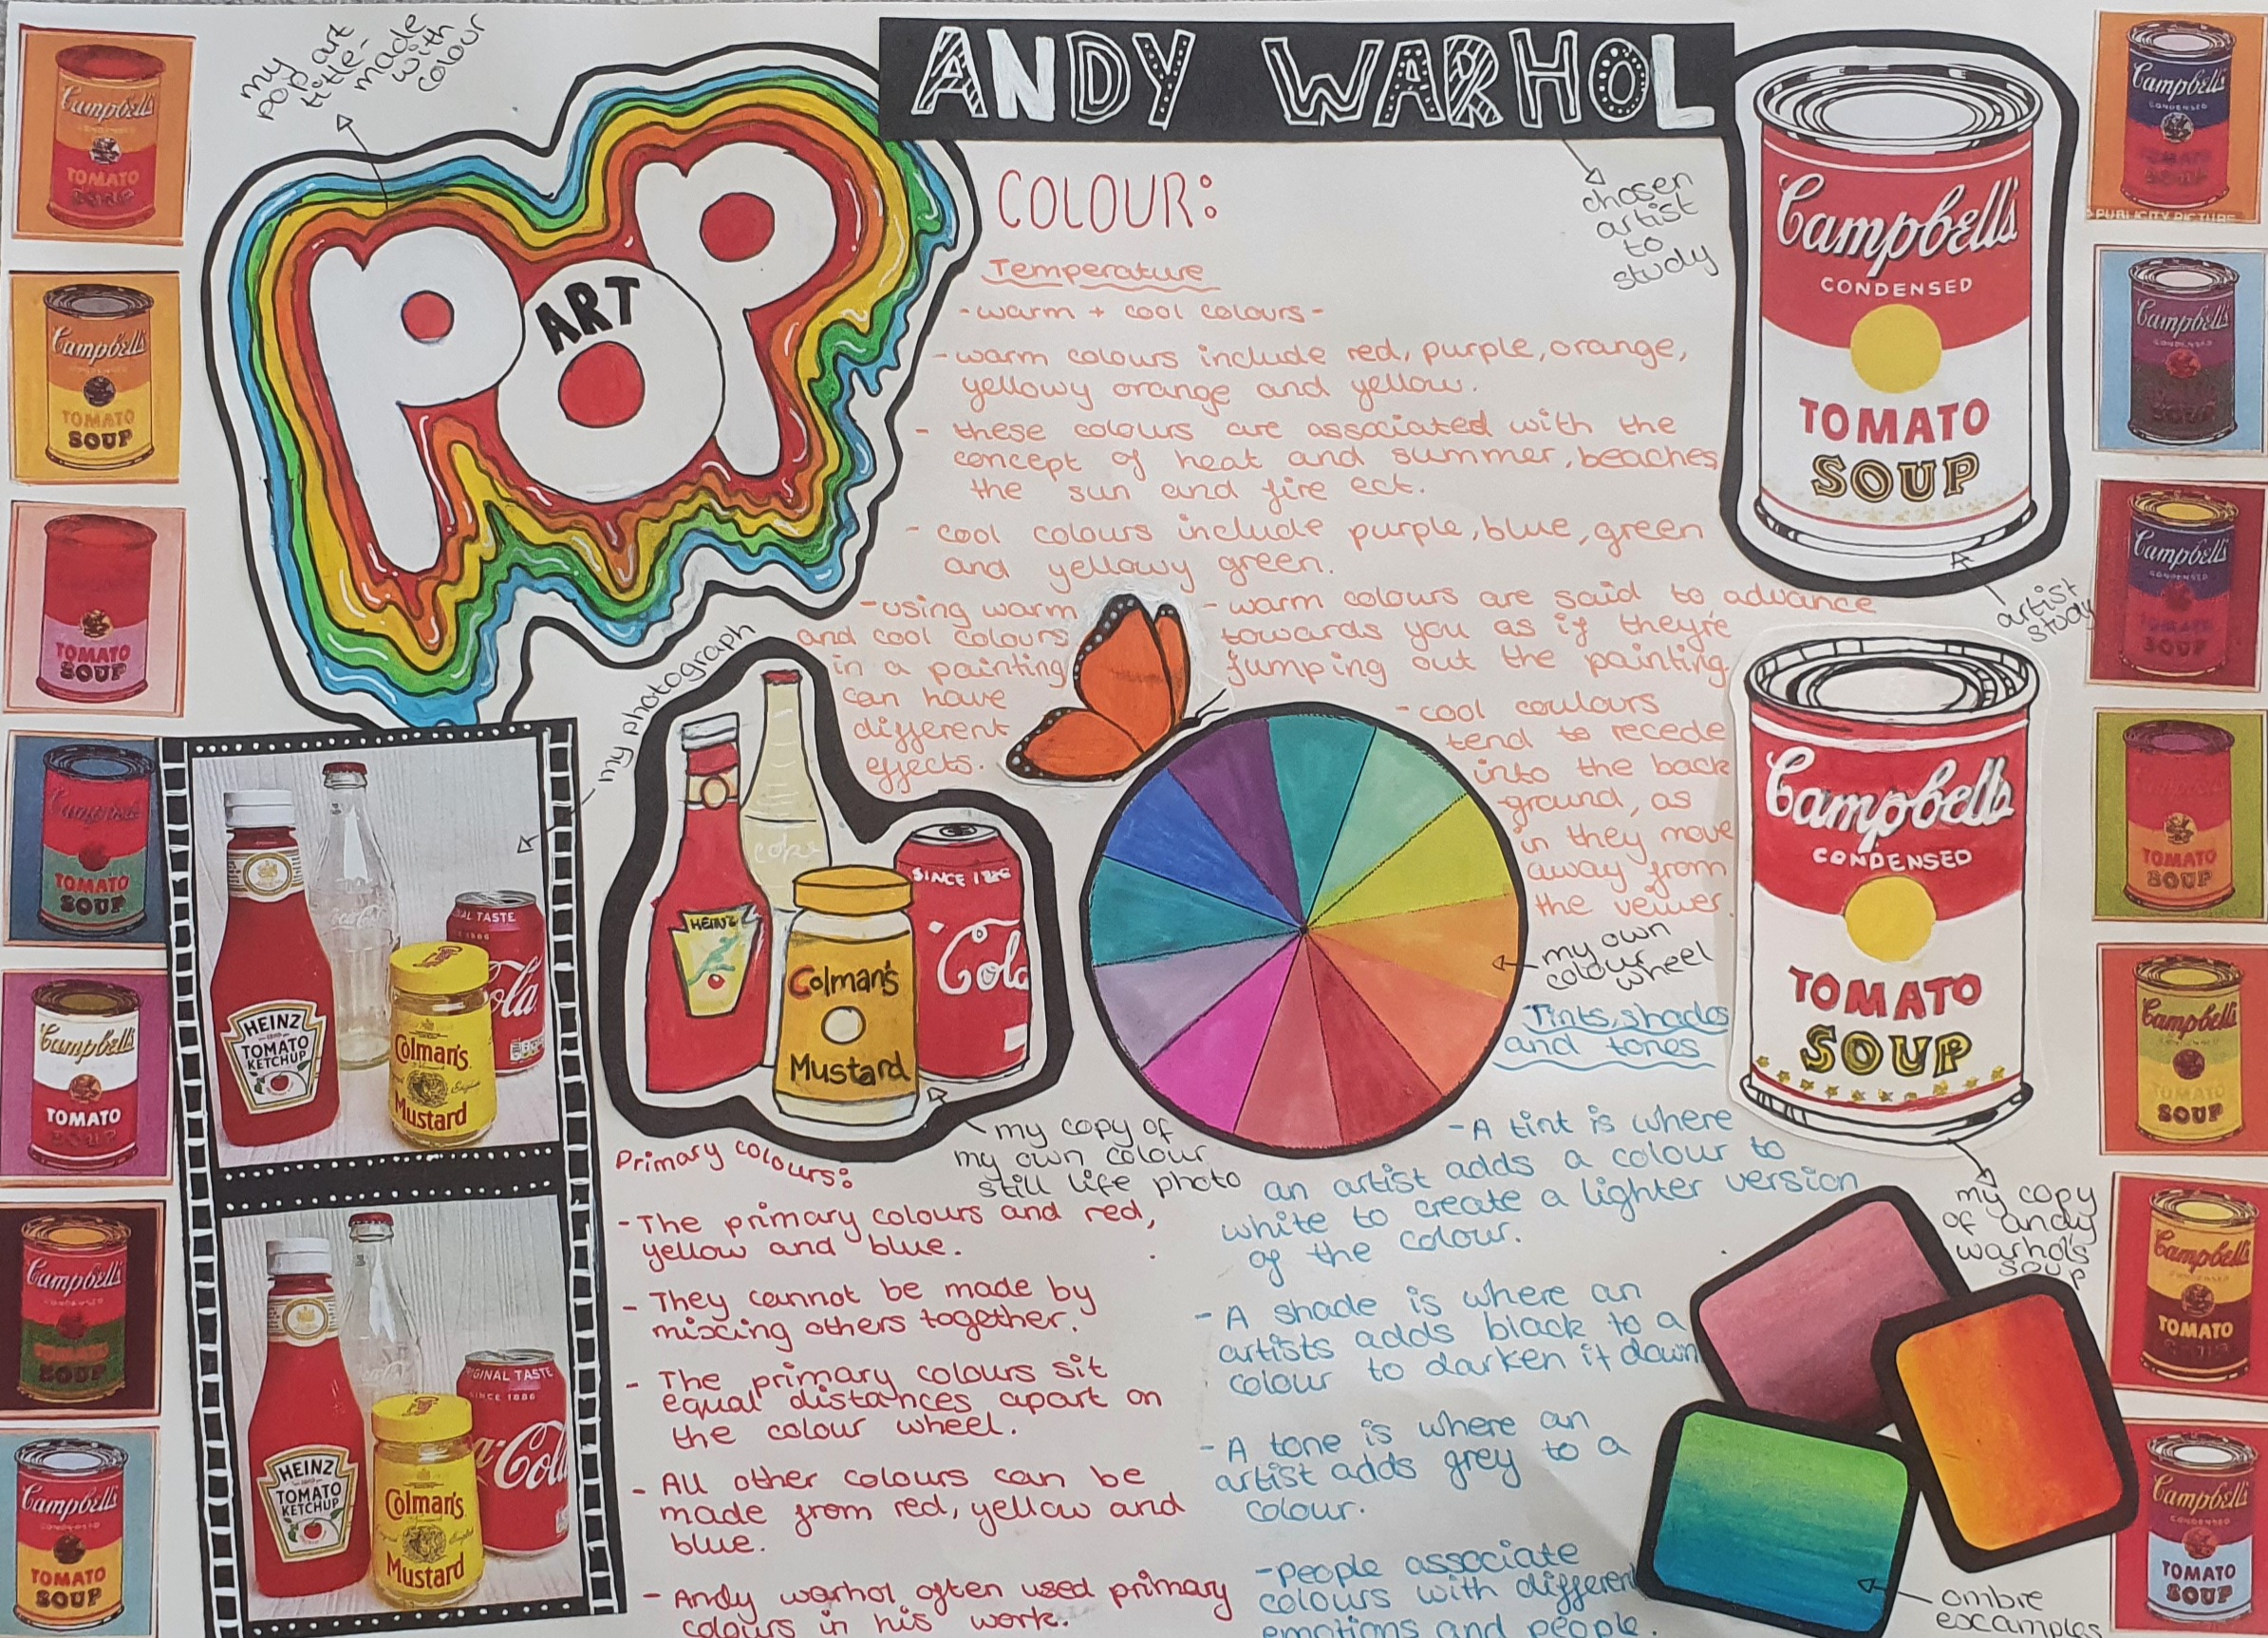 my
pop art
title-
made
with
colour
ANDY WARHOL
chosen
artist
to
study
POP
ART
COLOUR:
Temperature
-warm + cool colours-
-warm colours include red, purple, orange,
yellowy orange and yellow.
- these colours are associated with the
concept of heat and summer, beaches
the sun and fire ect.
- cool colours include purple, blue, green
and yellowy green.
-using warm
and cool colours
in a painting
can have
different
effects.
-warm colours are said to advance
towards you as if they're
jumping out the painting.
-cool coulours
tend to recede
into the back
ground, as
in they move
away from
the veiwer.
my own
colour
wheel
Tints, shades
and tones
-A tint is where
an artist adds a colour to
white to create a lighter version
of the colour.
- A shade is where an
artists adds black to a
colour to darken it down
- A tone is where an
artist adds grey to a
colour.
-people associate
colours with different
emotions and people.
Primary colours:
-The primary colours and red,
yellow and blue.
- They cannot be made by
mixing others together.
- The primary colours sit
equal distances apart on
the colour wheel.
- All other colours can be
made from red, yellow and
blue.
- Andy warhol often used primary
colours in his work.
my photograph
my copy of
my own colour
still life photo
HEINZ
Cope
SINCE 1886
Cola
Colman's
Mustard
HEINZ
TOMATO
KETCHUP
Colman's
Mustard
AL TASTE
1886
ola
HEINZ
TOMATO
KETCHUP
Colman's
Mustard
GINAL TASTE
SINCE 1886
a-Cola
Campbell's
CONDENSED
TOMATO
SOUP
artist
study
Campbell's
CONDENSED
TOMATO
SOUP
my copy
of andy
warhol's
soup
ombre
excamples
Campbell's
TOMATO
SOUP
Campbell's
TOMATO
SOUP
TOMATO
SOUP
Campbell's
TOMATO
SOUP
Campbell's
TOMATO
SOUP
Campbell's
TOMATO
SOUP
Campbell's
TOMATO
SOUP
Campbell's
CONDENSED
TOMATO
SOUP
PUBLICITY PICTURE
Campbell's
CONDENSED
Campbell's
CONDENSED
TOMATO
SOUP
TOMATO
SOUP
Campbell's
TOMATO
SOUP
Campbell's
TOMATO
SOUP
Campbell's
CONDENSED
TOMATO
SOUP